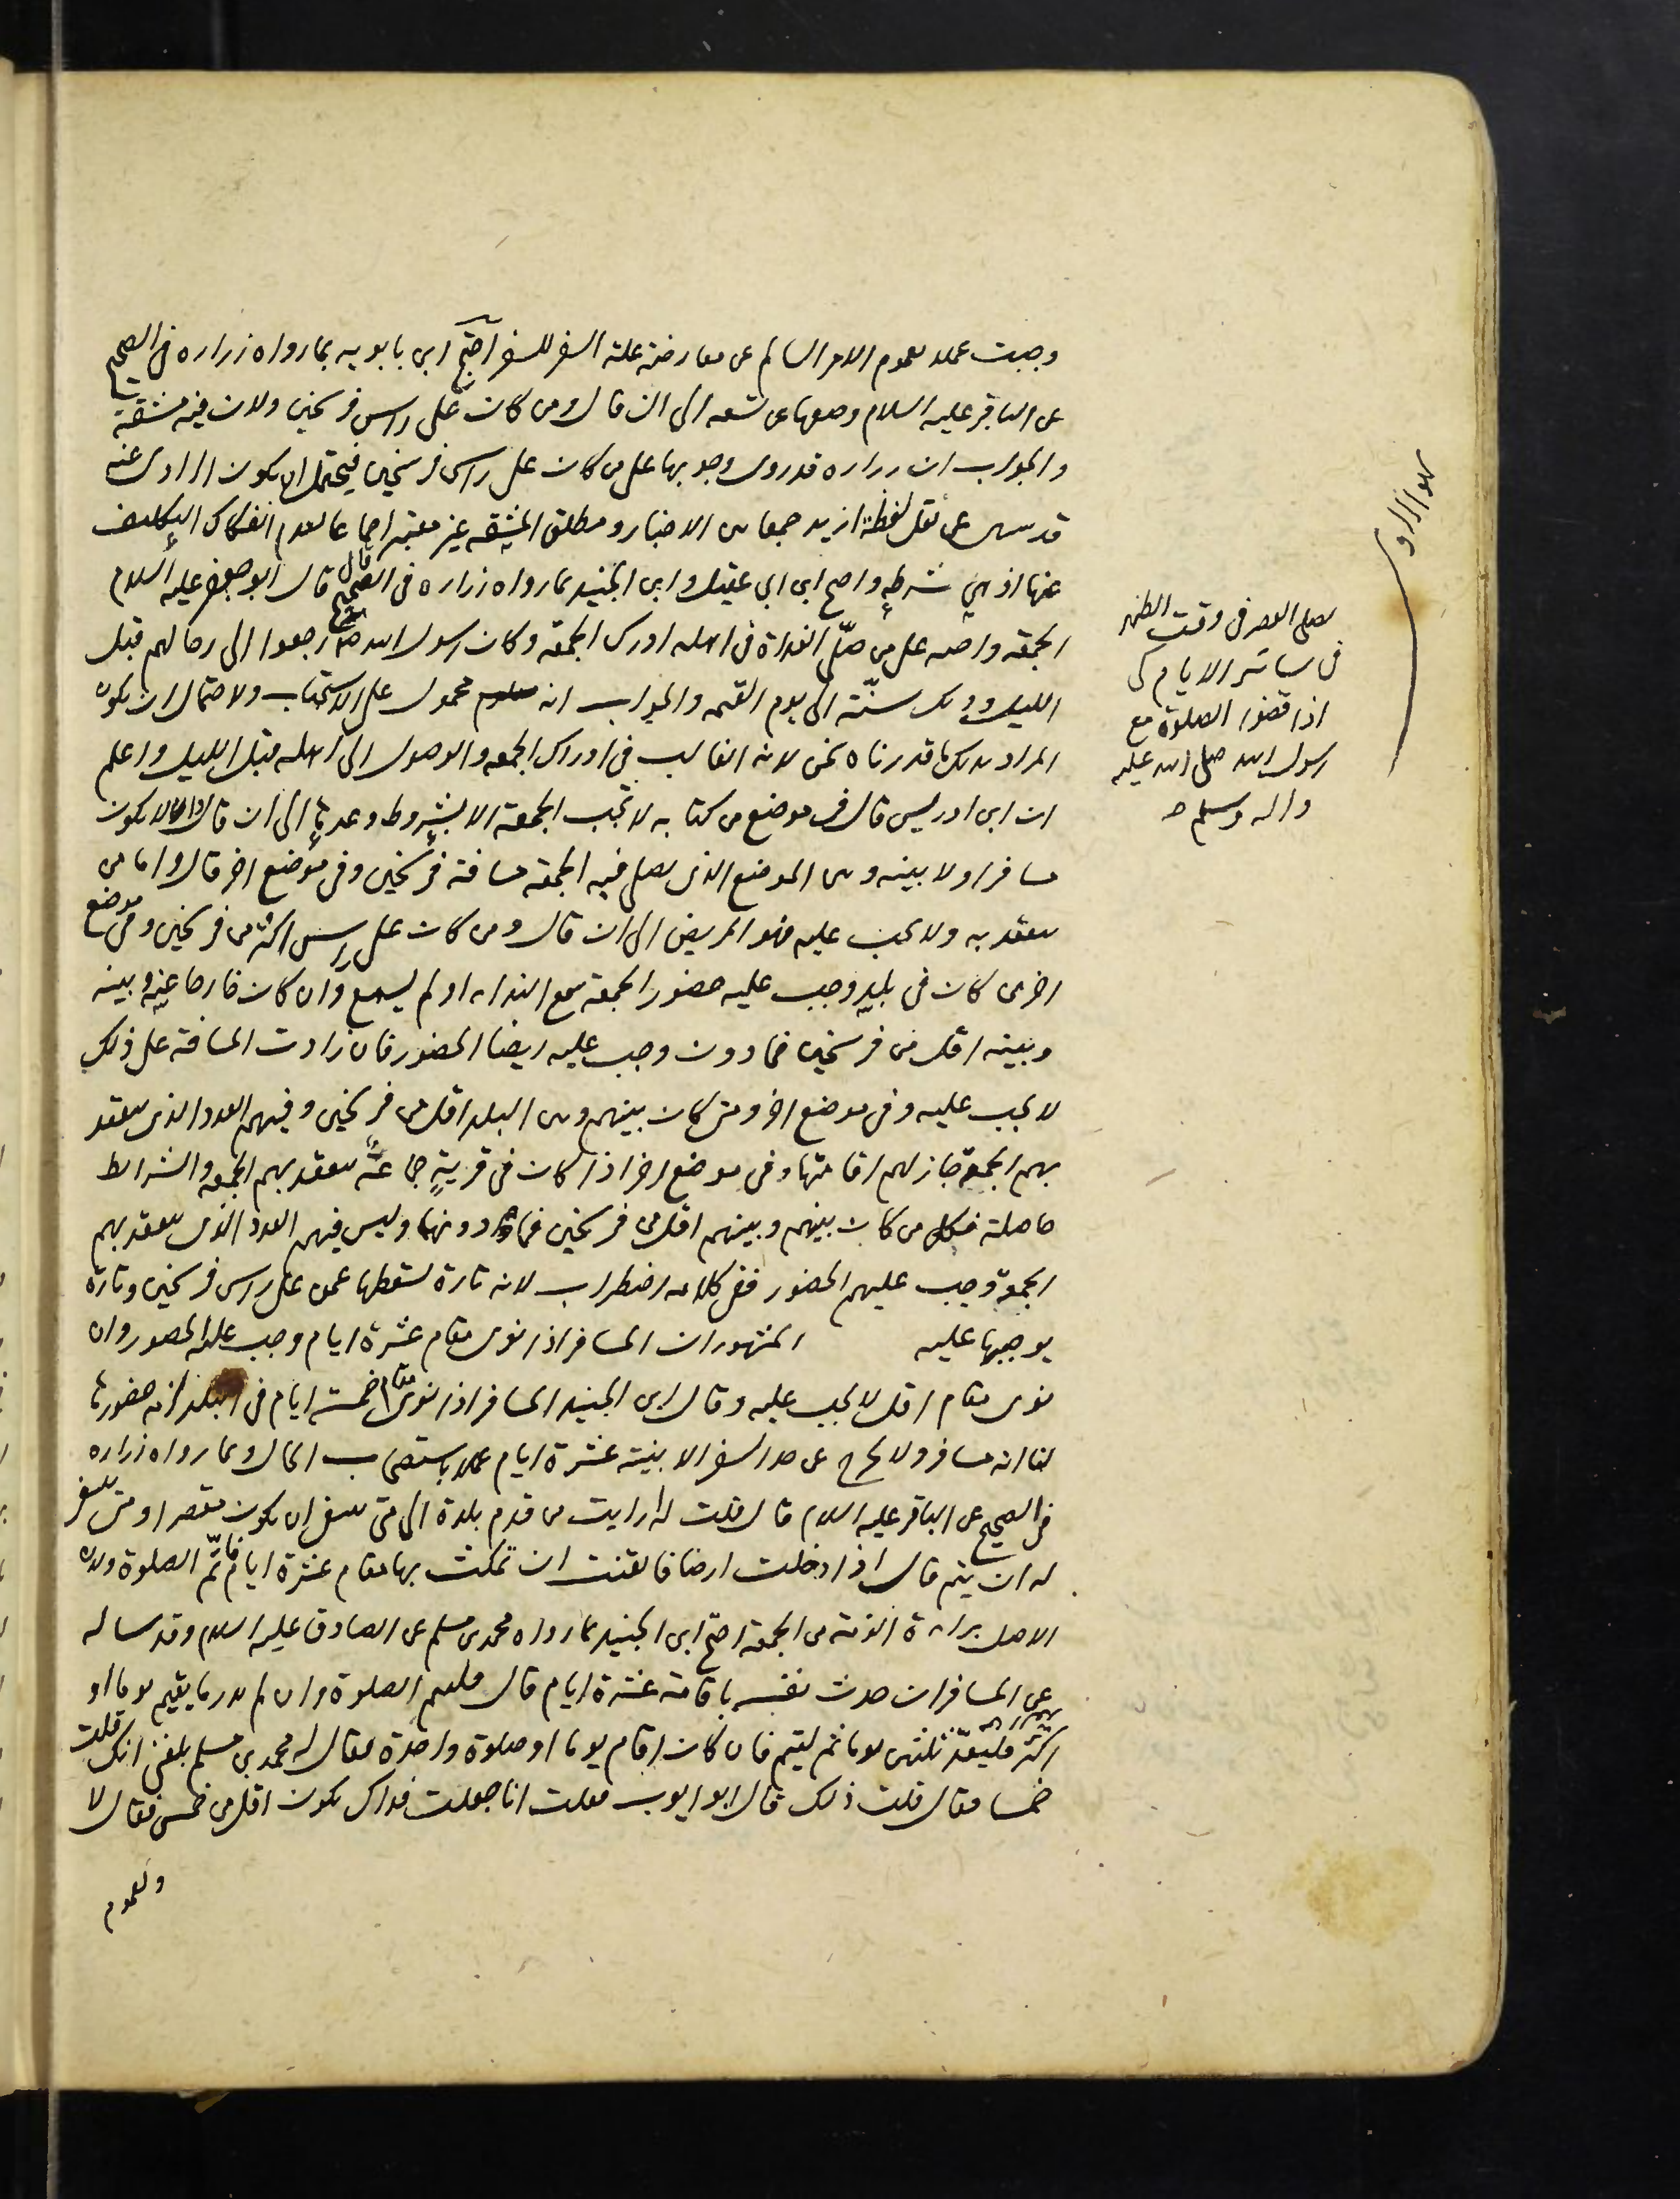 وجبت عملا بعموم الامر السالم عن معارضة علة السفر للسفر احتج ابن بابويه بما رواه زراره في الصحيح
عن الباقر عليه السلام وضعها عن تسعه الى ان قال ومن كان على راس فرسخين ولان فيه مشقة
والجواب ان زراره قد روى وجوبها على من كان على راس فرسخين فيحتمل ان يكون الراوى عنه
قد سهى عن نقل لفظة ازيد جمعا بين الاخبار ومطلق المشقه غير معتبر اجماعا لعدم انفكاك التكليف
عنها اذ هي شرطه واحتج ابن ابي عقيل وابن الجنيد بما رواه زراره فى الصحيح قال قال ابو جعفر عليه السلام
الجمعه واجبه على من صلّى الغداة فى اهله ادرك الجمعه وكان رسول الله رجعوا الى رحالهم قبل
الليل وذلك سنّة الى يوم القيمه والجواب انه محمول على الاستحباب ولاحتمال ان يكون
المراد بذلك ما قدرناه نحن لانه الغالب فى ادراك الجمعه والوصول الى اهله قبل الليل واعلم
ان ابن ادريس قال فى موضع من كتابه لا تجب الجمعة الا بشروط وعدها الى ان قال وان لا يكون
مسافرا ولا بينه وبين الموضع الذى يصلى فيه الجمعه مسافة فرسخين وفى موضع اخر قال واما من
ينعقد به ولا تجب عليه فهو المريض الى ان قال ومن كان على راس اكثر من فرسخين وفى موضع
اخر من كان فى بلد وجب عليه حضور الجمعة سمع النداء او لم يسمع وان كان خارجا عنه وبينه
وبينه اقل من فرسخين فما دون وجب عليه ايضا الحضور فان زادت المسافة على ذلك
لا يجب عليه وفى موضع اخر ومتى كان بينهم وبين البلد اقل من فرسخين وفيهم العدد الذى ينعقد
بهم الجمعة جاز لهم اقامتها وفى موضع اخر اذا كان فى قرية جماعة ينعقد بهم الجمعه والشرائط
حاصلة فكل من كان بينهم وبينهم اقل من فرسخين فما دونها وليس فيهم العدد الذى ينعقد بهم
الجمعة وجب عليهم الحضور ففى كلامه اضطراب لانه تارة يسقطها عمن على راس فرسخين وتارة
يوجبها عليه المشهور ان المسافر اذا نوى مقام عشرة ايام وجب عليه الحضور وان
نوى مقام اقل لا يجب عليه وقال ابن الجنيد المسافر اذا نوى مقام خمسة ايام فى البلد لزمه حضورها
لنا انه مسافر ولا يخرج عن حد السفر الا بنية عشرة ايام عملا باستصحاب الحال وبما رواه زراره
فى الصحيح عن الباقر عليه السلام قال قلت له ارايت من قدم بلدة الى متى ينبغى ان يكون مقصرا ومتى ينبغى
له ان يتم قال اذا دخلت ارضا فايقنت ان تمكث بها مقام عشرة ايام فاتمّ الصلوة ولان
الاصل براءة الذمة من الجمعة احتج ابن الجنيد بما رواه محمد بن مسلم عن الصادق عليه السلام وقد ساله
عن المسافر ان حدث نفسه باقامة عشرة ايام قال فليتم الصلوة وان لم يدر ما يقيم يوما او
اكثر فليعدّ ثلثين يوما ثم ليتم فان كان اقام يوما او صلوة واحدة فقال له محمد بن مسلم بلغنى انك قلت
خمسا فقال قلت ذلك قال ابو ايوب فقلت انا جعلت فداك يكون اقل من خمس فقال لا
ولعموم
يصلى العصر فى وقت الظهر
فى سائر الايام كى
اذا قضوا الصلوة مع
رسول الله صلى الله عليه
واله وسلم